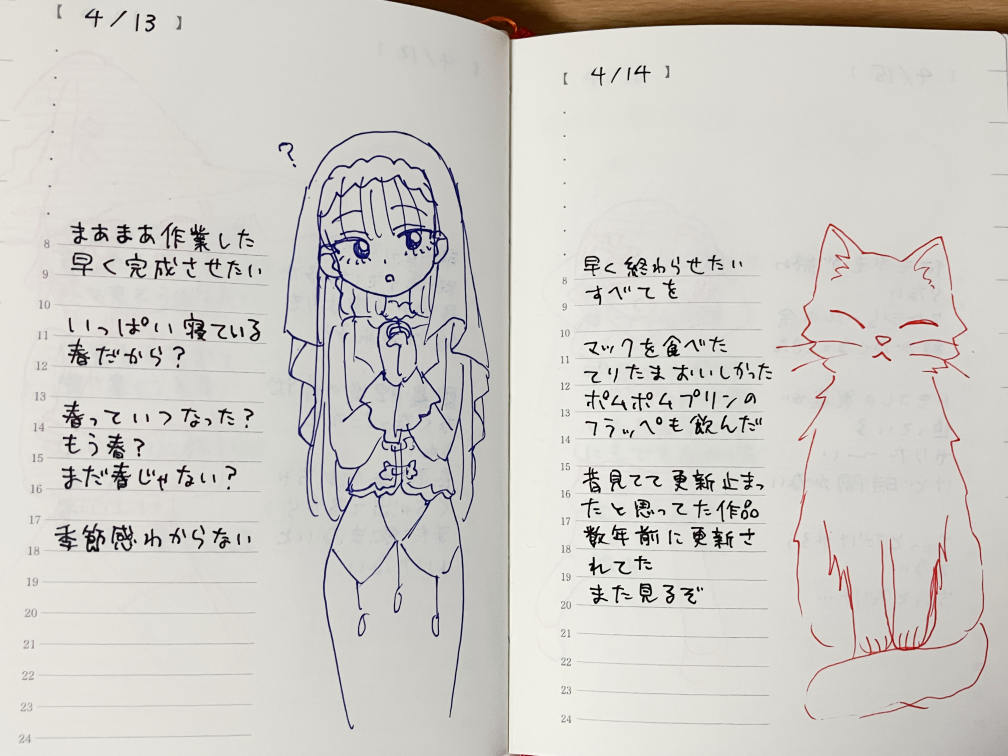 【 4/13 】
?
まあまあ作業した
早く完成させたい
いっぱい寝ている
春だから?
春っていつなった?
もう春?
まだ春じゃない?
季節感わからない
8
9
10
11
12
13
14
15
16
17
18
19
20
21
22
23
24
【 4/14 】
早く終わらせたい
すべてを
マックを食べた
てりたまおいしかった
ポムポムプリンの
フラッペも飲んだ
昔見てて更新止まっ
たと思ってた作品
数年前に更新さ
れてた
また見るぞ
8
9
10
11
12
13
14
15
16
17
18
19
20
21
22
23
24